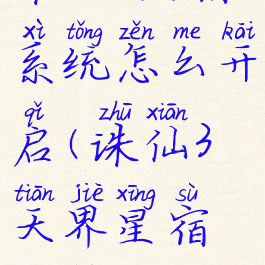 xì tǒng zěn me kāi
系统怎么开
qǐ zhū xiān
启(诛仙3
tiān jiè xīng sù
天界星宿